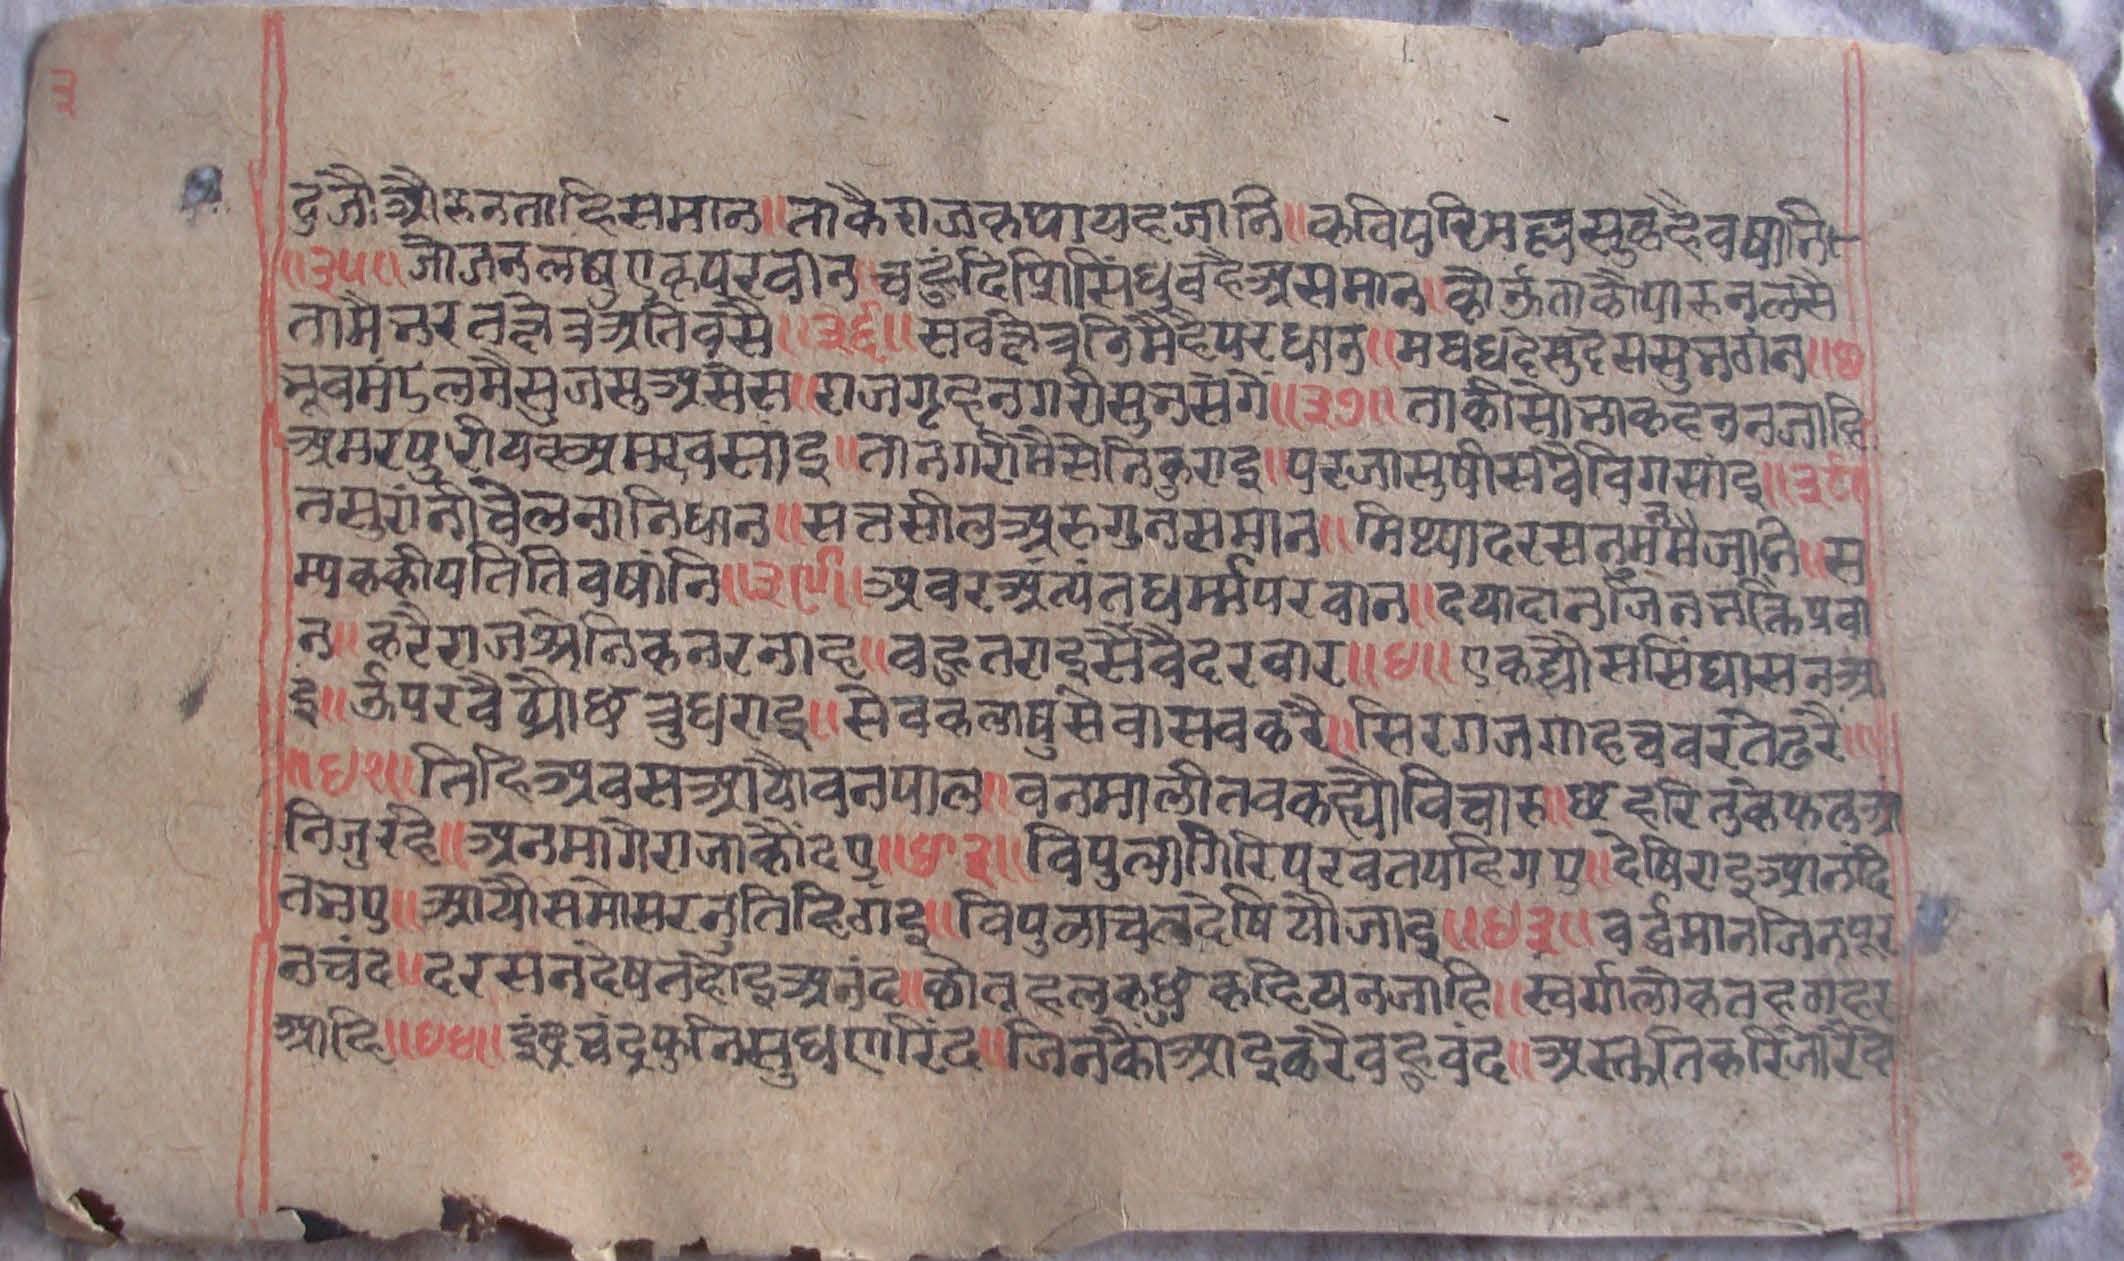 ३
दुजौ औरुनताहिसमान॥ताकैराजकथायहजानि॥कविपरिमल्लसुकहैवषानि
॥३५॥जोजनलषुएकपरवान॥चहुंदिषिसिंधुवहैअसमान॥कोऊताकौपारुनलसै
तामैभरतक्षेत्रअतिवसै॥३६॥सवक्षेत्रनिमैहैपरधान॥मघधदेसुदेससुभगंन॥
भूवमंडलमैसुजसुअसेस॥राजगृहनगरीसुभसेगे॥३७॥ताकीसोभाकहननजाहि
अमरपुरीयहअमरवसाइ॥तानगरीमैसेनिकुराइ॥परजासुषीसवैविगसांइ॥३८॥
तसुरांनीचेलनानिधान॥सतसीलअरुगुनसमान॥मिथ्यादरसनुमनमैजांनि॥स
म्यककीपतितिवषांनि॥३९॥अवरअंत्यंतधर्म्मपरवान॥दयादानजिनभक्तिप्रवा
न॥करैराजश्रेनिकनरनाह॥वहुतराइसेवैदरवार॥४॥एकद्यौससिंघासनआ
इ॥ऊपरवैठ्यौछत्रुधराइ॥सेवकलाषुसेवासवकरै॥सिरगजगाहचवरतेढरै॥
॥४१॥तिहिअवसआयौवनपाल॥वनमालीतवकह्यौविचारु॥छहरितुकेफलआ
निजुरहे॥अनमागेराजाकौदए॥४२॥विपुलागिरिपरवतपहिगए॥देषिराइआनंदि
तभए॥आयौसमौसरनुतिहिठाइ॥विपुलाचलदेषियौजाइ॥४३॥वर्द्धमानजिनपूर
नचंद॥दरसनदेषतहोइअनंद॥कौतूहलकछुकहियनजाहि॥स्वर्गालोकतहगहर
आदि॥४४॥इंद्रचंद्रफुनिसुधरारिंद॥जिनकौआइकरैवहुवंद॥अस्तुतिकरिजोरैदो
३